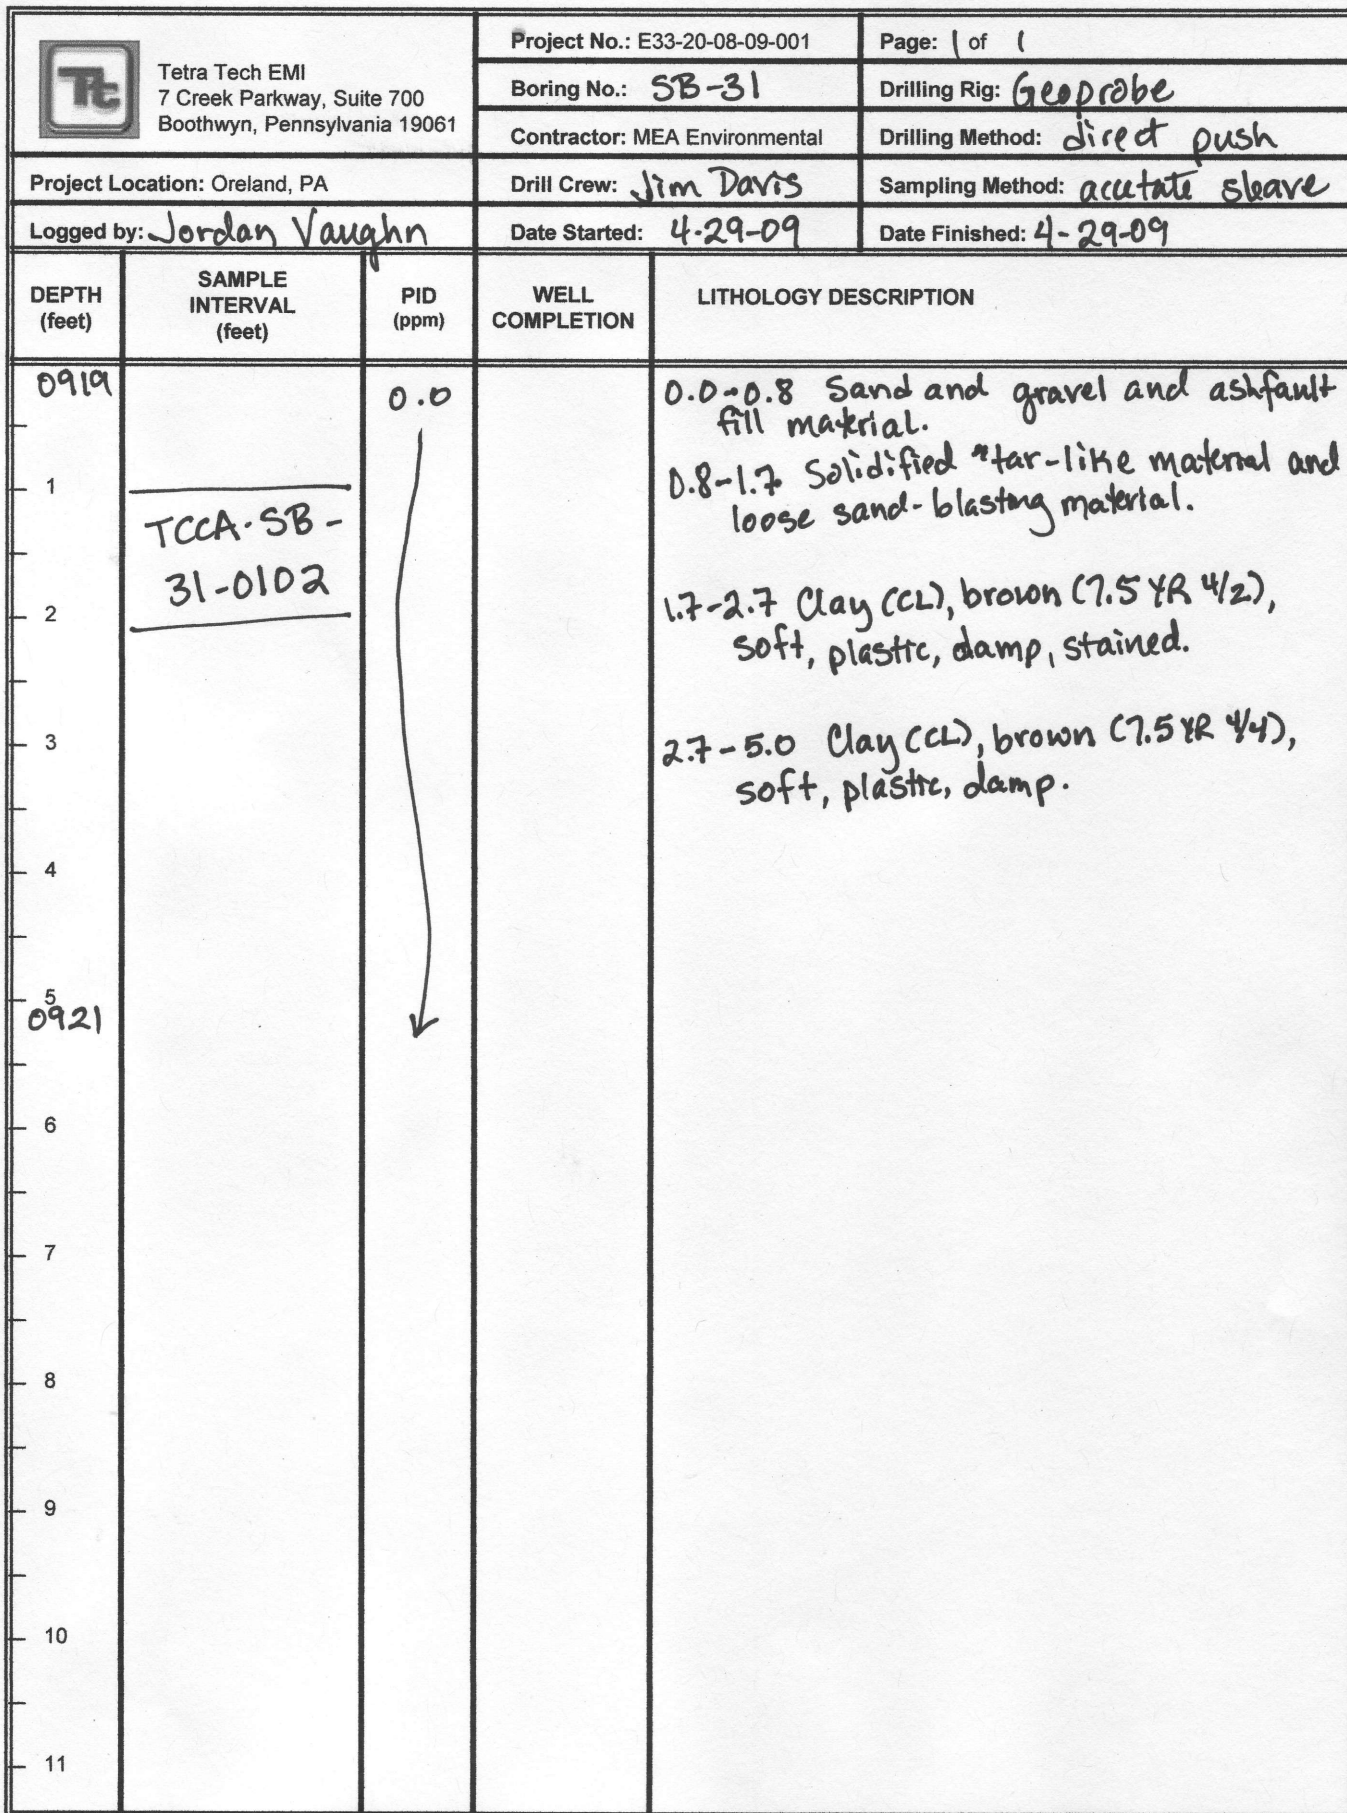 Tt
Tetra Tech EMI
7 Creek Parkway, Suite 700
Boothwyn, Pennsylvania 19061
Project No.: E33-20-08-09-001
Page: 1 of 1
Boring No.: SB-31
Drilling Rig: Geoprobe
Contractor: MEA Environmental
Drilling Method: direct push
Project Location: Oreland, PA
Drill Crew: Jim Davis
Sampling Method: acetate sleave
Logged by: Jordan Vaughn
Date Started: 4-29-09
Date Finished: 4-29-09
DEPTH
(feet)
SAMPLE
INTERVAL
(feet)
PID
(ppm)
WELL
COMPLETION
LITHOLOGY DESCRIPTION
0919
0.0
0.0-0.8 Sand and gravel and ashfault
fill material.
0.8-1.7 Solidified "tar-like material and
loose sand-blasting material.
1
TCCA-SB-
31-0102
2
1.7-2.7 Clay (CL), brown (7.5 YR 4/2),
soft, plastic, damp, stained.
3
2.7-5.0 Clay (CL), brown (7.5 YR 4/4),
soft, plastic, damp.
4
5
0921
6
7
8
9
10
11